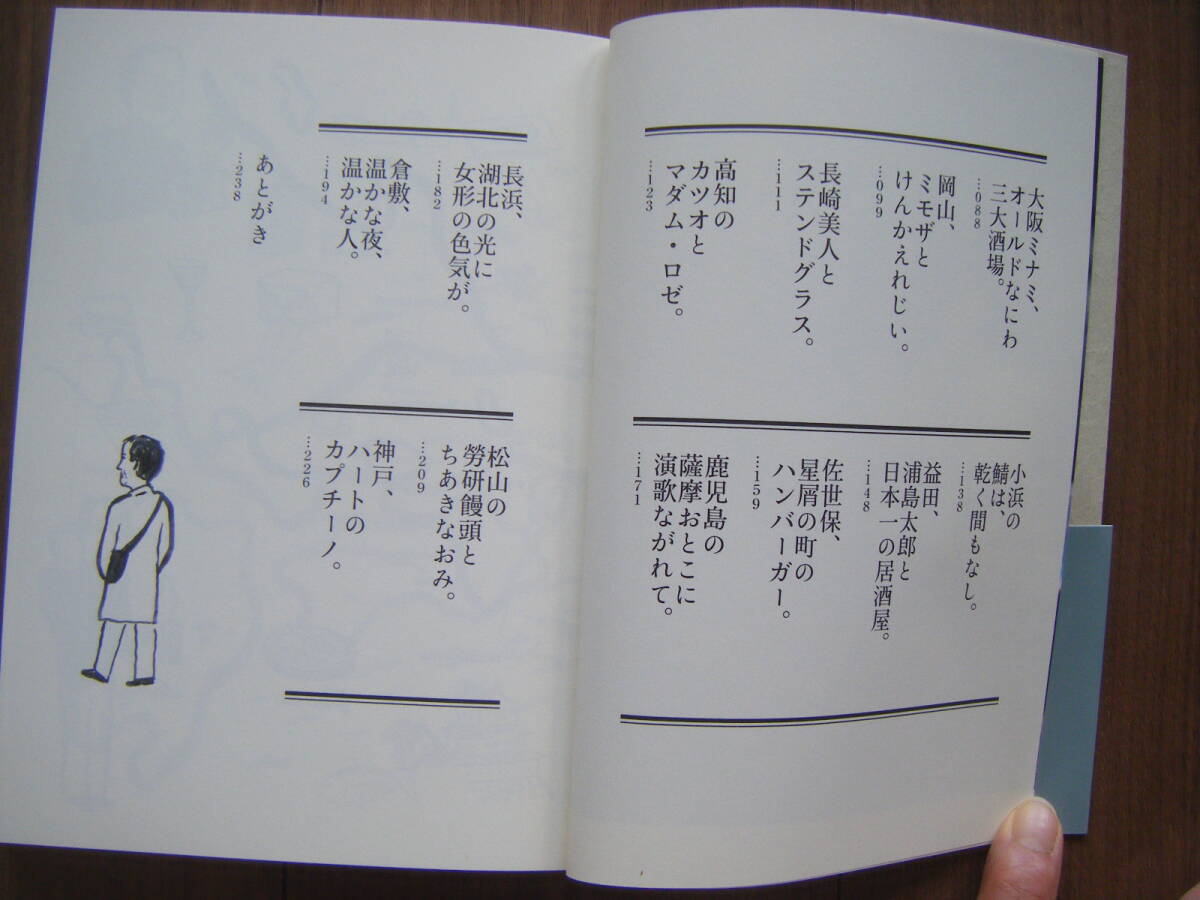 大阪ミナミ、
オールドなにわ
三大酒場。
…088
岡山、
ミモザと
けんかえれじい。
…099
長崎美人と
ステンドグラス。
…111
高知の
カツオと
マダム・ロゼ。
…123
小浜の
鯖は、
乾く間もなし。
…138
益田、
浦島太郎と
日本一の居酒屋。
…148
佐世保、
星屑の町の
ハンバーガー。
…159
鹿児島の
薩摩おとこに
演歌ながれて。
…171
長浜、
湖北の光に
女形の色気が。
…182
倉敷、
温かな夜、
温かな人。
…194
松山の
労研饅頭と
ちあきなおみ。
…209
神戸、
ハートの
カプチーノ。
…226
あとがき
…238